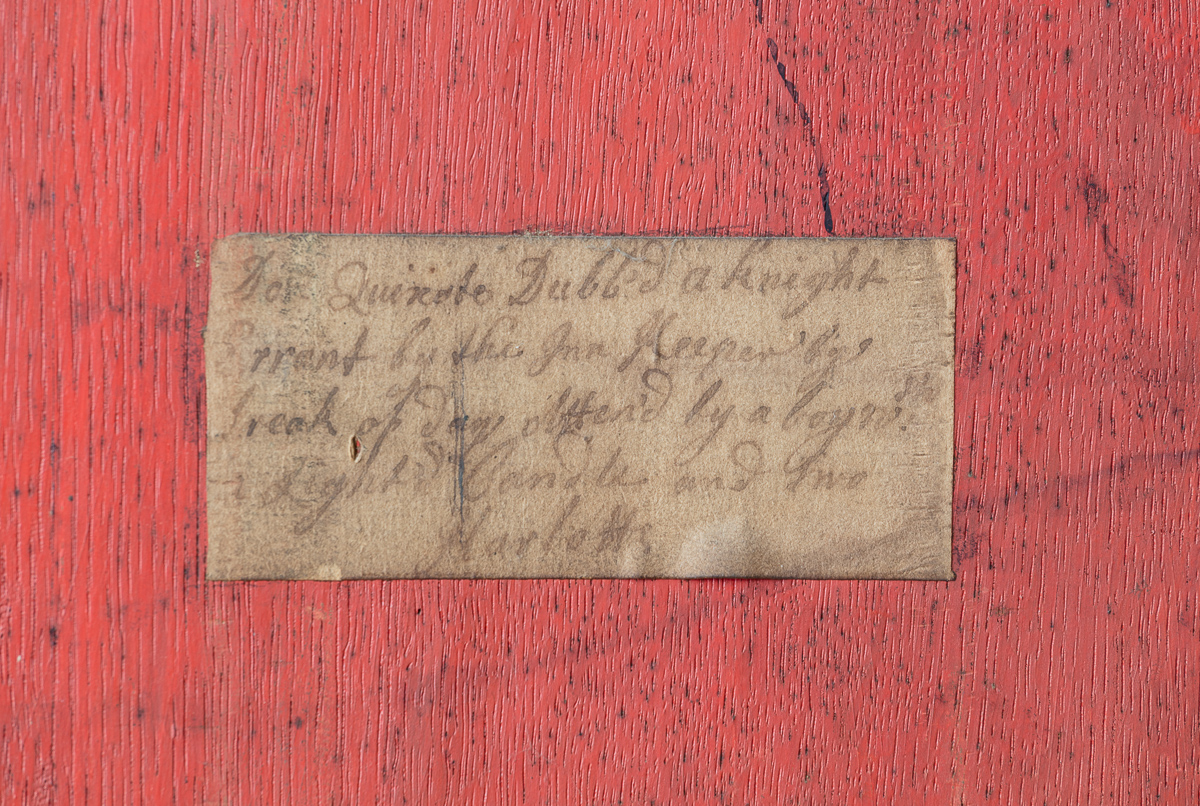 Don Quixote Dubb'd a knight
Errant by the Inn Keeper by
break of day attend'd by a boy wth
a Light'd Candle and two
Harlotts